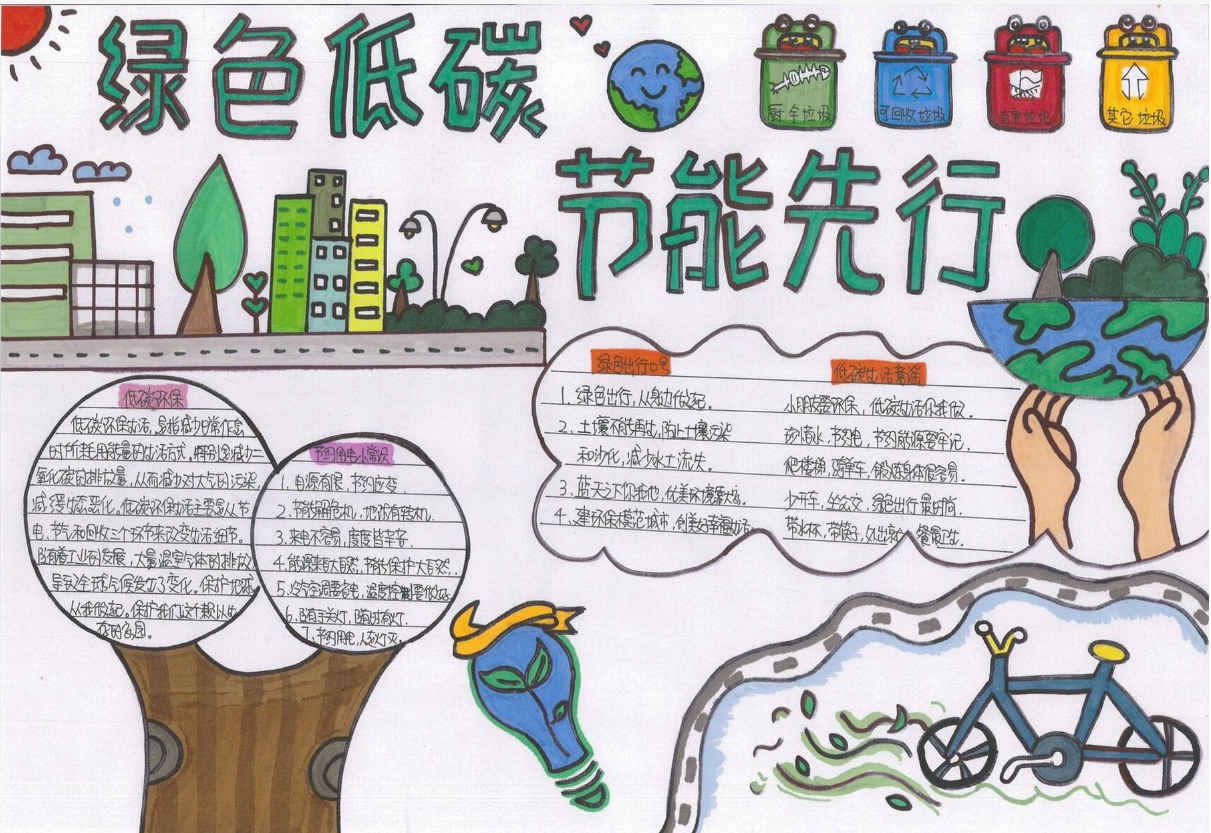 绿色低碳
厨余垃圾
可回收垃圾
有害垃圾
其它垃圾
节能先行
低碳环保
低碳环保生活,是指减少日常作息
时所耗用能量的生活方式。特别是减少二
氧化碳的排放量,从而减少对大气的污染,
减缓生态恶化,低碳环保生活主要是从节
电、节气和回收三个环节来改变生活细节。
随着工业的发展,大量温室气体的排放,
导致全球气候发生了变化。保护地球,
从我做起。保护我们这个赖以生
存的家园。
节约用电小常识
1、电源有限,节约应变.
2、节能用电机,地球有转机.
3、来电不容易,度度皆辛苦.
4、能源来自大自然,节能保护大自然.
5、冷气空调要省电,温度控制要做好.
6、随手关灯,随时有灯.
7、节约用电,人走灯灭.
绿色出行口号
1、绿色出行,从身边做起.
2、土壤不能再生,防止土壤污染
和沙化,减少水土流失。
3、蓝天下你我他,优美环境靠大家.
4、建环保模范城市,创美好幸福生活
低碳生活童谣
小朋友要环保,低碳生活你我做.
珍惜水,节约电,节约能源要牢记.
爬楼梯,骑单车,锻炼身体很容易.
少开车,坐公交,绿色出行最时尚.
带水杯,带筷子,外出就餐更卫生.